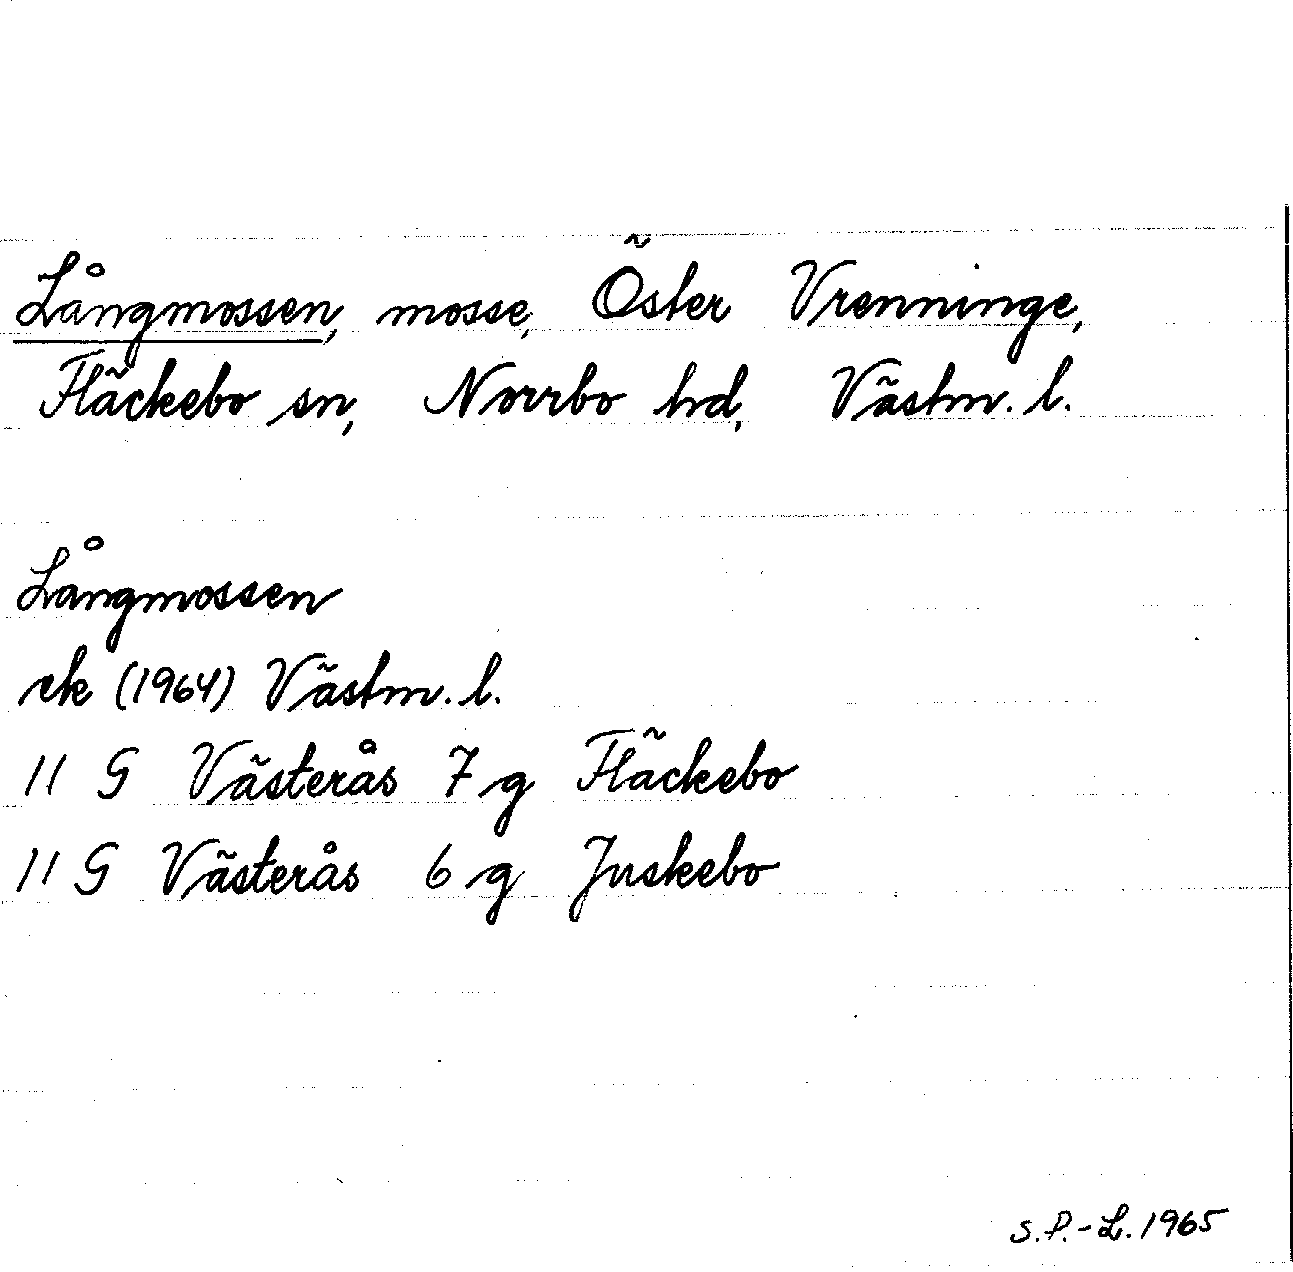 Långmossen, mosse, Öster Vrenninge,
Fläckebo sn, Norrbo hd, Västm. l.
Långmossen
ek (1964) Västm. l.
11 G Västerås 7 g Fläckebo
11 G Västerås 6 g Juskebo
S.P.-L. 1965